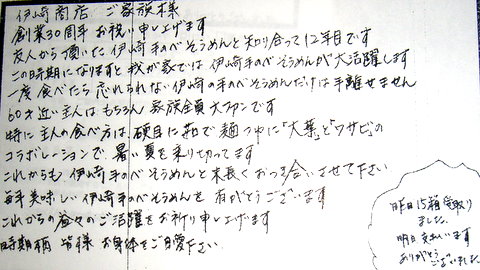 伊崎商店 ご家族様
創業30周年 お祝い申し上げます
友人から頂いた伊崎手のべそうめんと知り合って12年目です
この時期になりますと我が家では伊崎手のべそうめんが大活躍します
一度食べたら忘れられない伊崎の手のべそうめんだけは手離せません
60才近い主人はもちろん家族全員大ファンです
特に主人の食べ方は、硬目に茹で麺つゆに「大葉」と「ワサビ」の
コラボレーションで、暑い夏を乗り切ってます
これからも 伊崎手のべそうめんと末長くおつき合いさせて下さい
毎年美味しい伊崎手のべそうめんを 有がとうございます
これからの益々のご活躍をお祈り申し上げます
時期柄 皆様 お身体をご自愛下さい
昨日15箱受取り
ました。
明日支払います
ありがとう
ございました